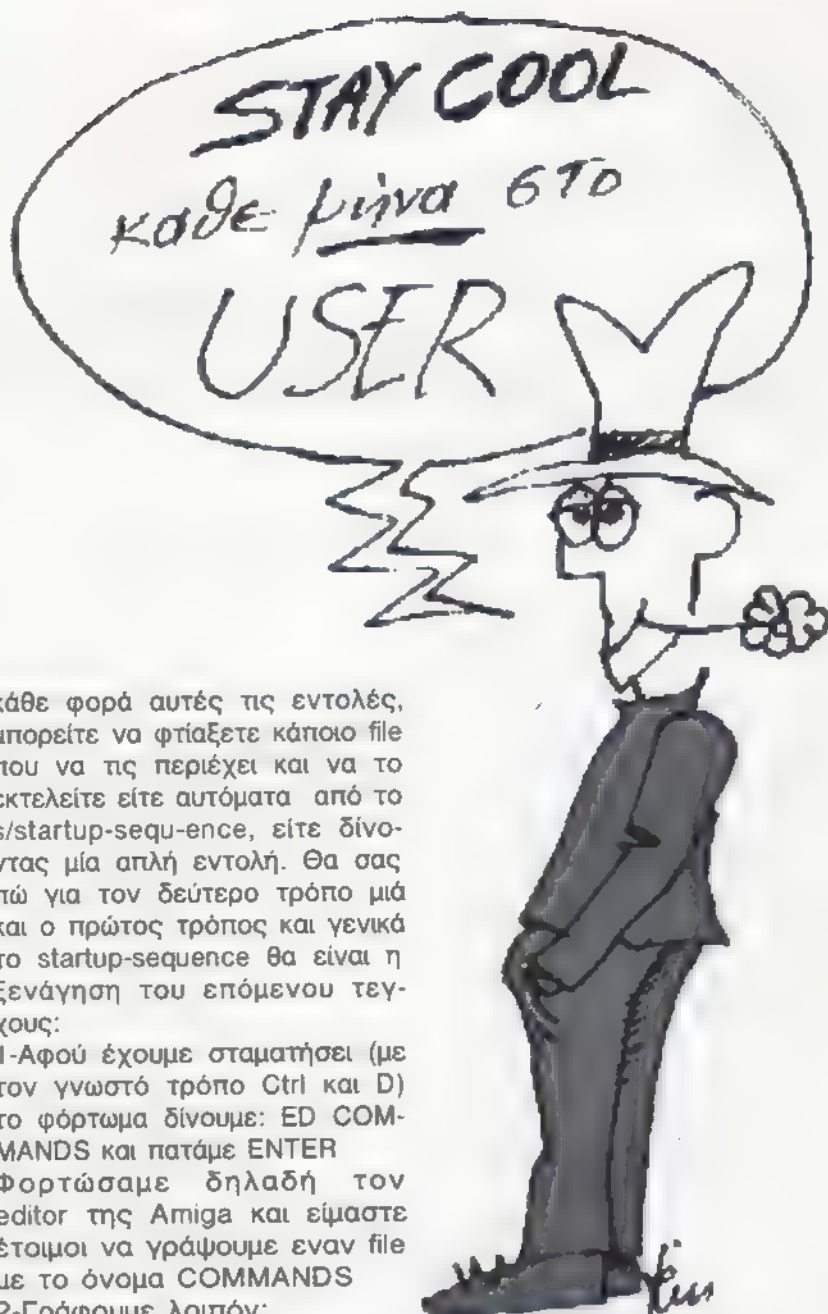 STAY COOL
κάθε μήνα στο
USER
κάθε φορά αυτές τις εντολές,
μπορείτε να φτίαξετε κάποιο file
που να τις περιέχει και να το
εκτελείτε είτε αυτόματα από το
s/startup-sequ-ence, είτε δίνο-
ντας μία απλή εντολή. Θα σας
πώ για τον δεύτερο τρόπο μιά
και ο πρώτος τρόπος και γενικά
το startup-sequence θα είναι η
ξενάγηση του επόμενου τεγ-
χους:
1-Αφού έχουμε σταματήσει (με
τον γνωστό τρόπο Ctrl και D)
το φόρτωμα δίνουμε: ED COM-
MANDS και πατάμε ENTER
Φορτώσαμε δηλαδή τον
editor της Amiga και είμαστε
έτοιμοι να γράψουμε εναν file
με το όνομα COMMANDS
2-Γράφουμε λοιπόν: